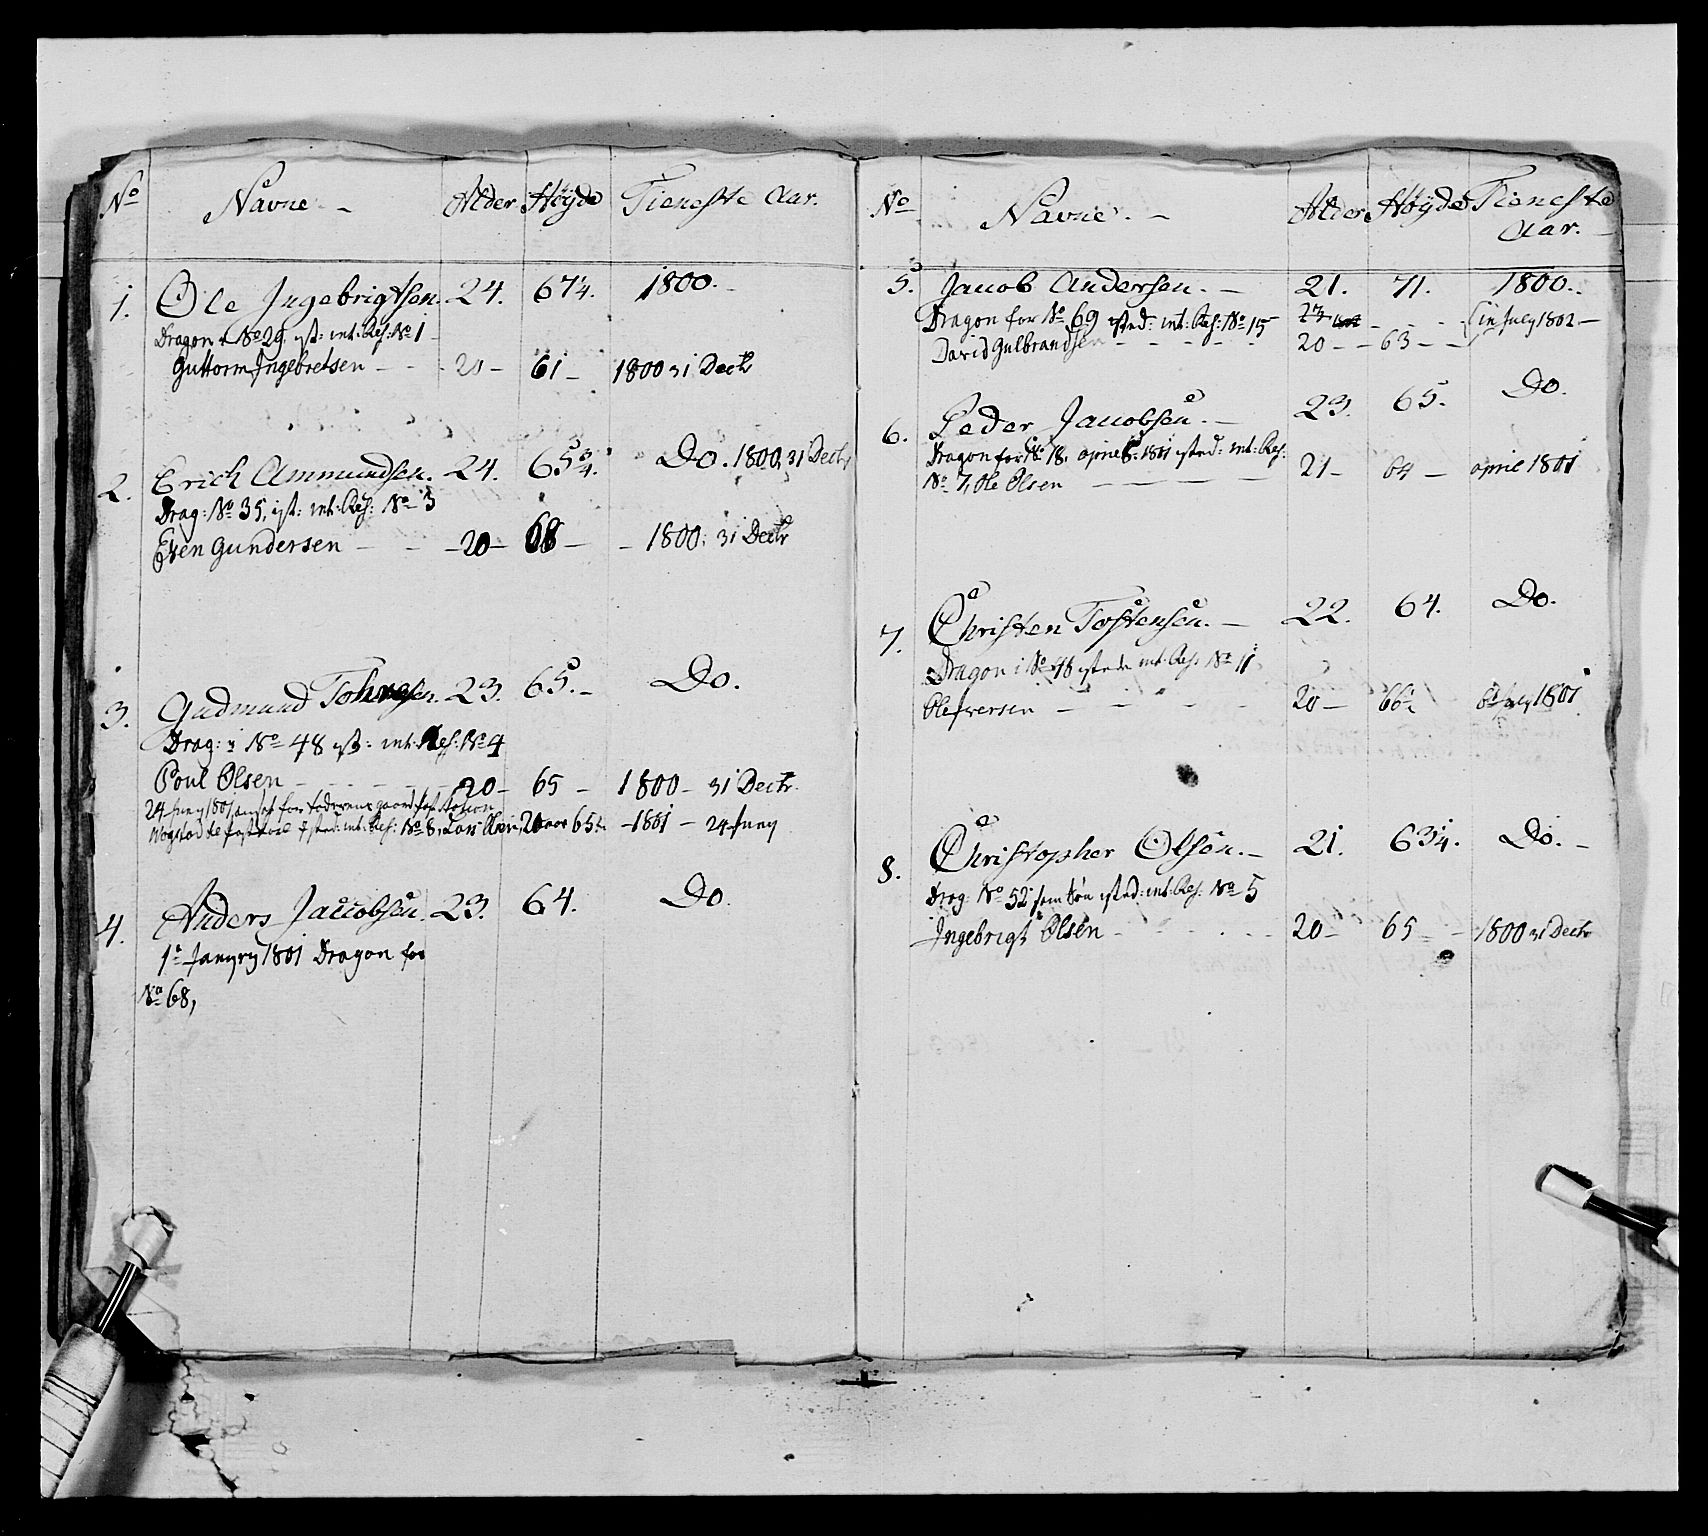 No Navne Alder Høyde Tieneste Aar.
1. Ole Ingebrigtsen. 24. 67¼. 1800.
Dragon No 29. ist: int: Res: No 1
Guttorm Ingebretsen 20 61 1800 31 Dectr
2. Erich Ammundsen. 24. 65¾. Do. 1800, 31 Dectr
Drag: No 35, ist: int: Res: No 3
Even Gundersen 20 68 1800: 31 Dectr
3. Gudmund 23. 65. Do.
Drag: i No 48 ist: int: Res: No 4
Poul Olsen 20 65 1800 31 Dectr.
24 Juny 1801 for
isted: int: Res: No 8, 20 aar 65 1801 24 Juny
4. Anders Jacobsen. 23. 64. Do.
1te Janury 1801 Dragon for
No 68,
No Navne. Alder Høyde Tieneste
Aar.
5. Jacob Andersen. 21. 71. 1800.
Dragon for No 69 isted: int: Res: No 15 July 1802
David Gulbrandsen 20 63
6. Peder Jacobsen. 23. 65. Do.
Dragon for No 18, april 1801 isted: int: Res:
No 7, Ole Olsen 21 64 april 1801
7. Christen Tostensen. 22. 64. Do.
Dragon i No 48 isted: int: Res: No 11
Ole Iversen 20 66 July 1801
8. Christopher Olsøn. 21. 63¼. Do.
Drag: No 52 som søn isted: int: Res: No 5
Ingebrigt Olsen 20 65 1800 31 Dectr